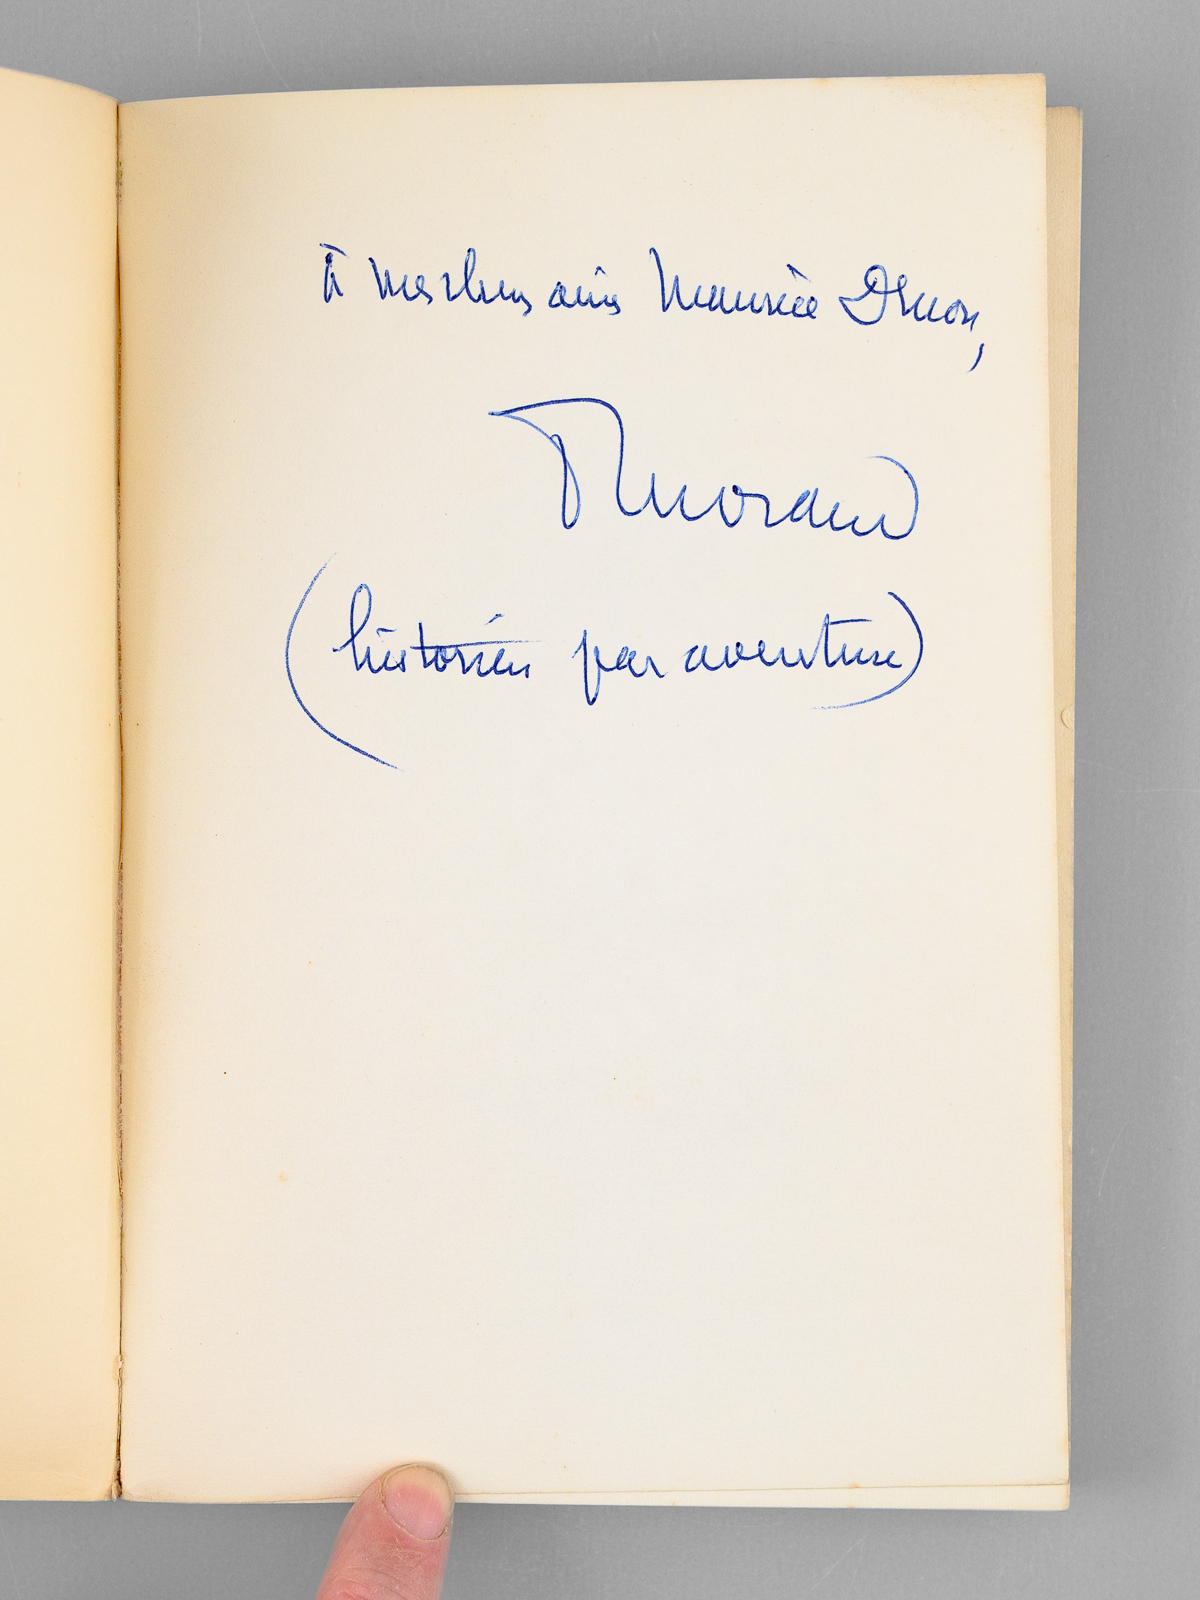 À mes chers amis Maurice Druon,
P Morand
(historien par aventure)